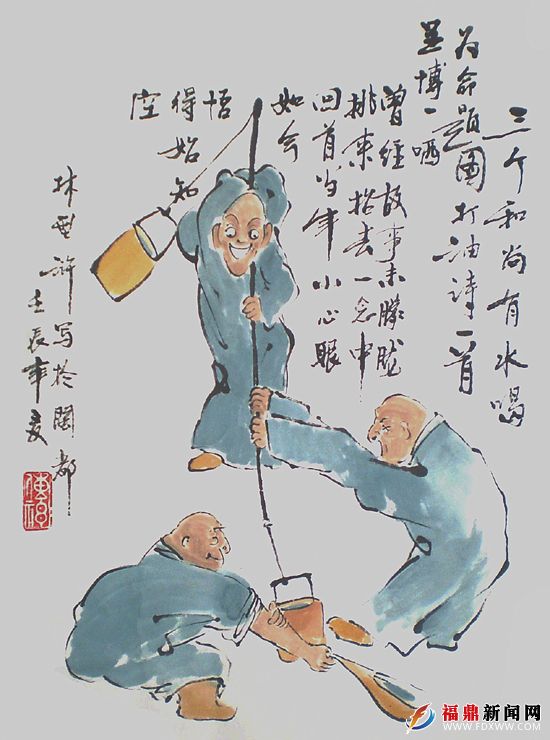 三个和尚有水喝
为命题图打油诗一首
并博一哂
曾经故事未朦胧
挑来抬去一念中
回首当年小心眼
如今
悟
得始知
空
林 浒写於闽都
壬辰年夏
福鼎新闻网
WWW.FDXWW.COM